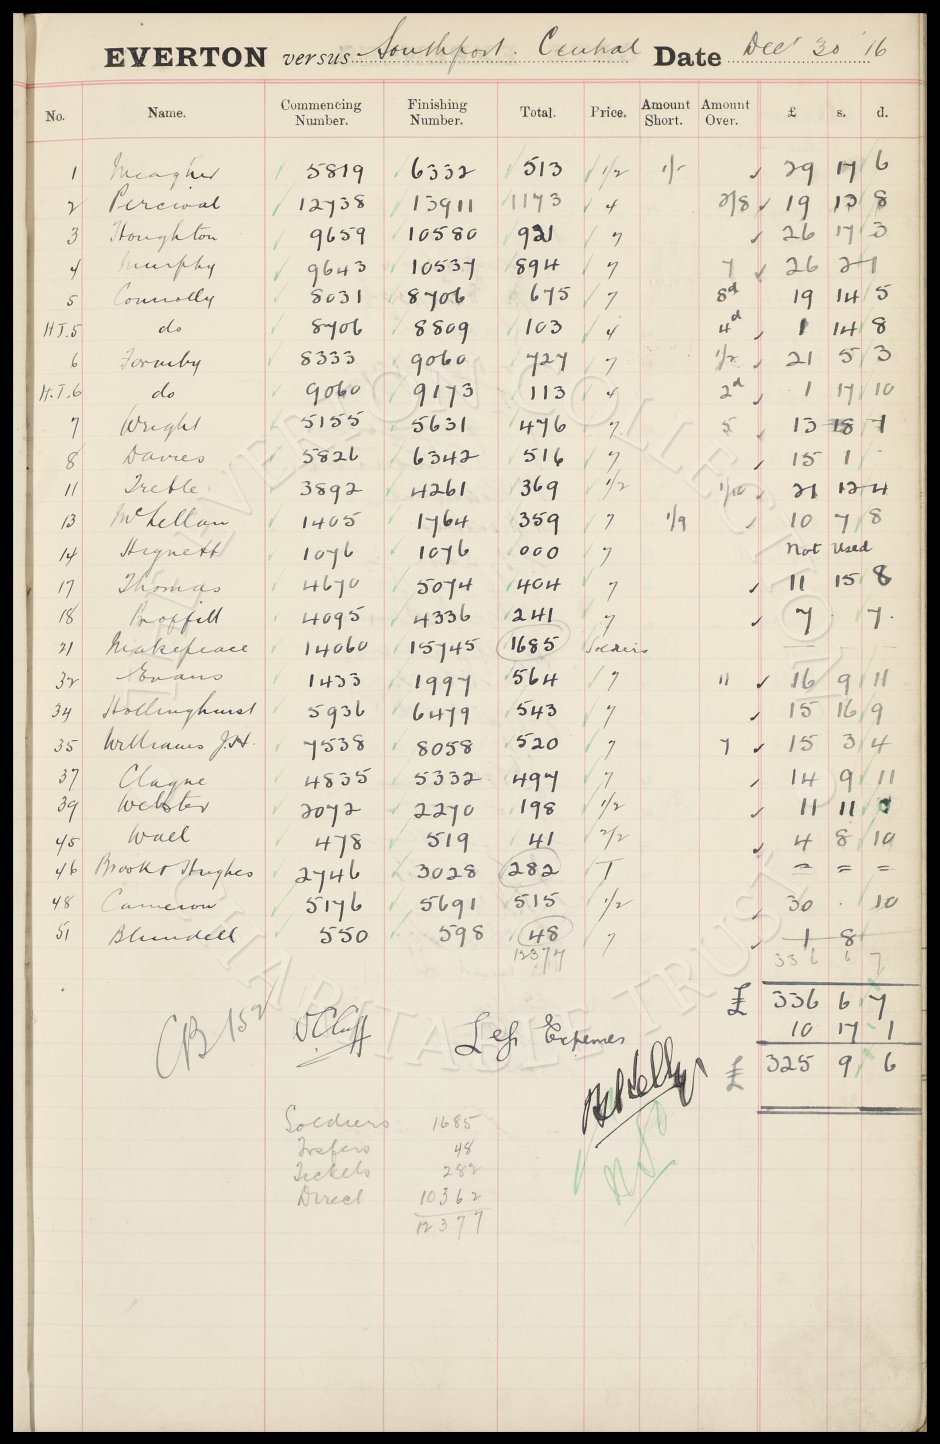 EVERTON versus Southport Central Date Dec 30 '16
No. Name. Commencing Number. Finishing Number. Total. Price. Amount Short. Amount Over. £ s. d.
1 Meagher 5819 6332 513 1/2 1/- 29 17 6
2 Percival 12738 13911 1173 4 2/8 19 13 8
3 Houghton 9659 10580 921 7 26 17 3
4 Murphy 9643 10537 894 7 7 26 2 1
5 Connolly 8031 8706 675 7 8d 19 14 5
H.T.5 do 8706 8809 103 4 4d 1 14 8
6 Formby 8333 9060 727 7 1/2 21 5 3
H.T.6 do 9060 9173 113 4 2d 1 17 10
7 Wright 5155 5631 476 7 5 13 18 1
8 Davies 5826 6342 516 7 15 1 -
11 Treble 3892 4261 369 1/2 1/10 21 12 4
13 McLellan 1405 1764 359 7 1/9 10 7 8
14 Hignett 1076 1076 000 7 Not Used
17 Thomas 4670 5074 404 7 11 15 8
18 Proffitt 4095 4336 241 7 7 7
21 Makepeace 14060 15745 1685 Soldiers
32 Evans 1433 1997 564 7 11 16 9 11
34 Hollinghurst 5936 6479 543 7 15 16 9
35 Williams J.H. 7538 8058 520 7 7 15 3 4
37 Clague 4835 5332 497 7 14 9 11
39 Webster 2072 2270 198 1/2 11 11 0
45 Wall 478 519 41 2/2 4 8 10
46 Brook & Hughes 2746 3028 282 T = = =
48 Cameron 5176 5691 515 1/2 30 . 10
51 Blundell 550 598 48 7 1 8
12377 336 6 7
£ 336 6 7
CB 152 D Cluff Less Expenses 10 17 1
£ 325 9 6
Soldiers 1685
Trsfers 48
Tickets 282
Direct 10362
12377
EVERTON COLLECTION
CHARITABLE TRUST